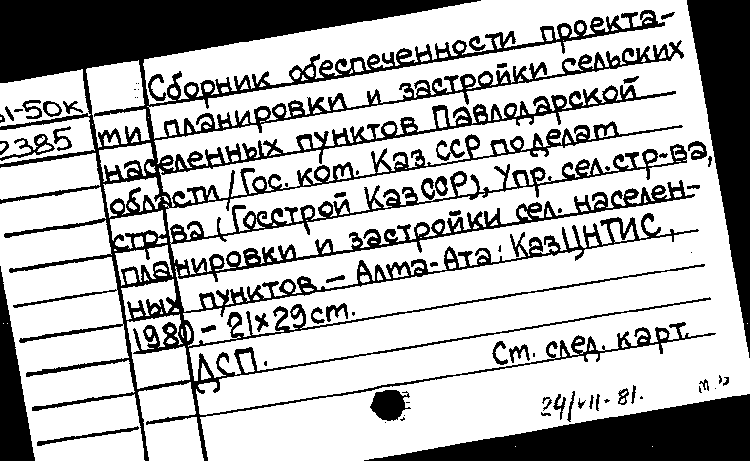 Сборник обеспеченности проекта-
51-50к
ти планировки и застройки сельских
2385
населенных пунктов Павлодарской
области / Гос. ком. Каз. ССР по делам
стр-ва (Госстрой КазССР), Упр. сел. стр-ва,
планировки и застройки сел. населен-
ных пунктов. – Алма-Ата: КазЦНТИС,
1980. – 21x29 cm.
ДСП.
Ст. след. карт.
24/VII-81.